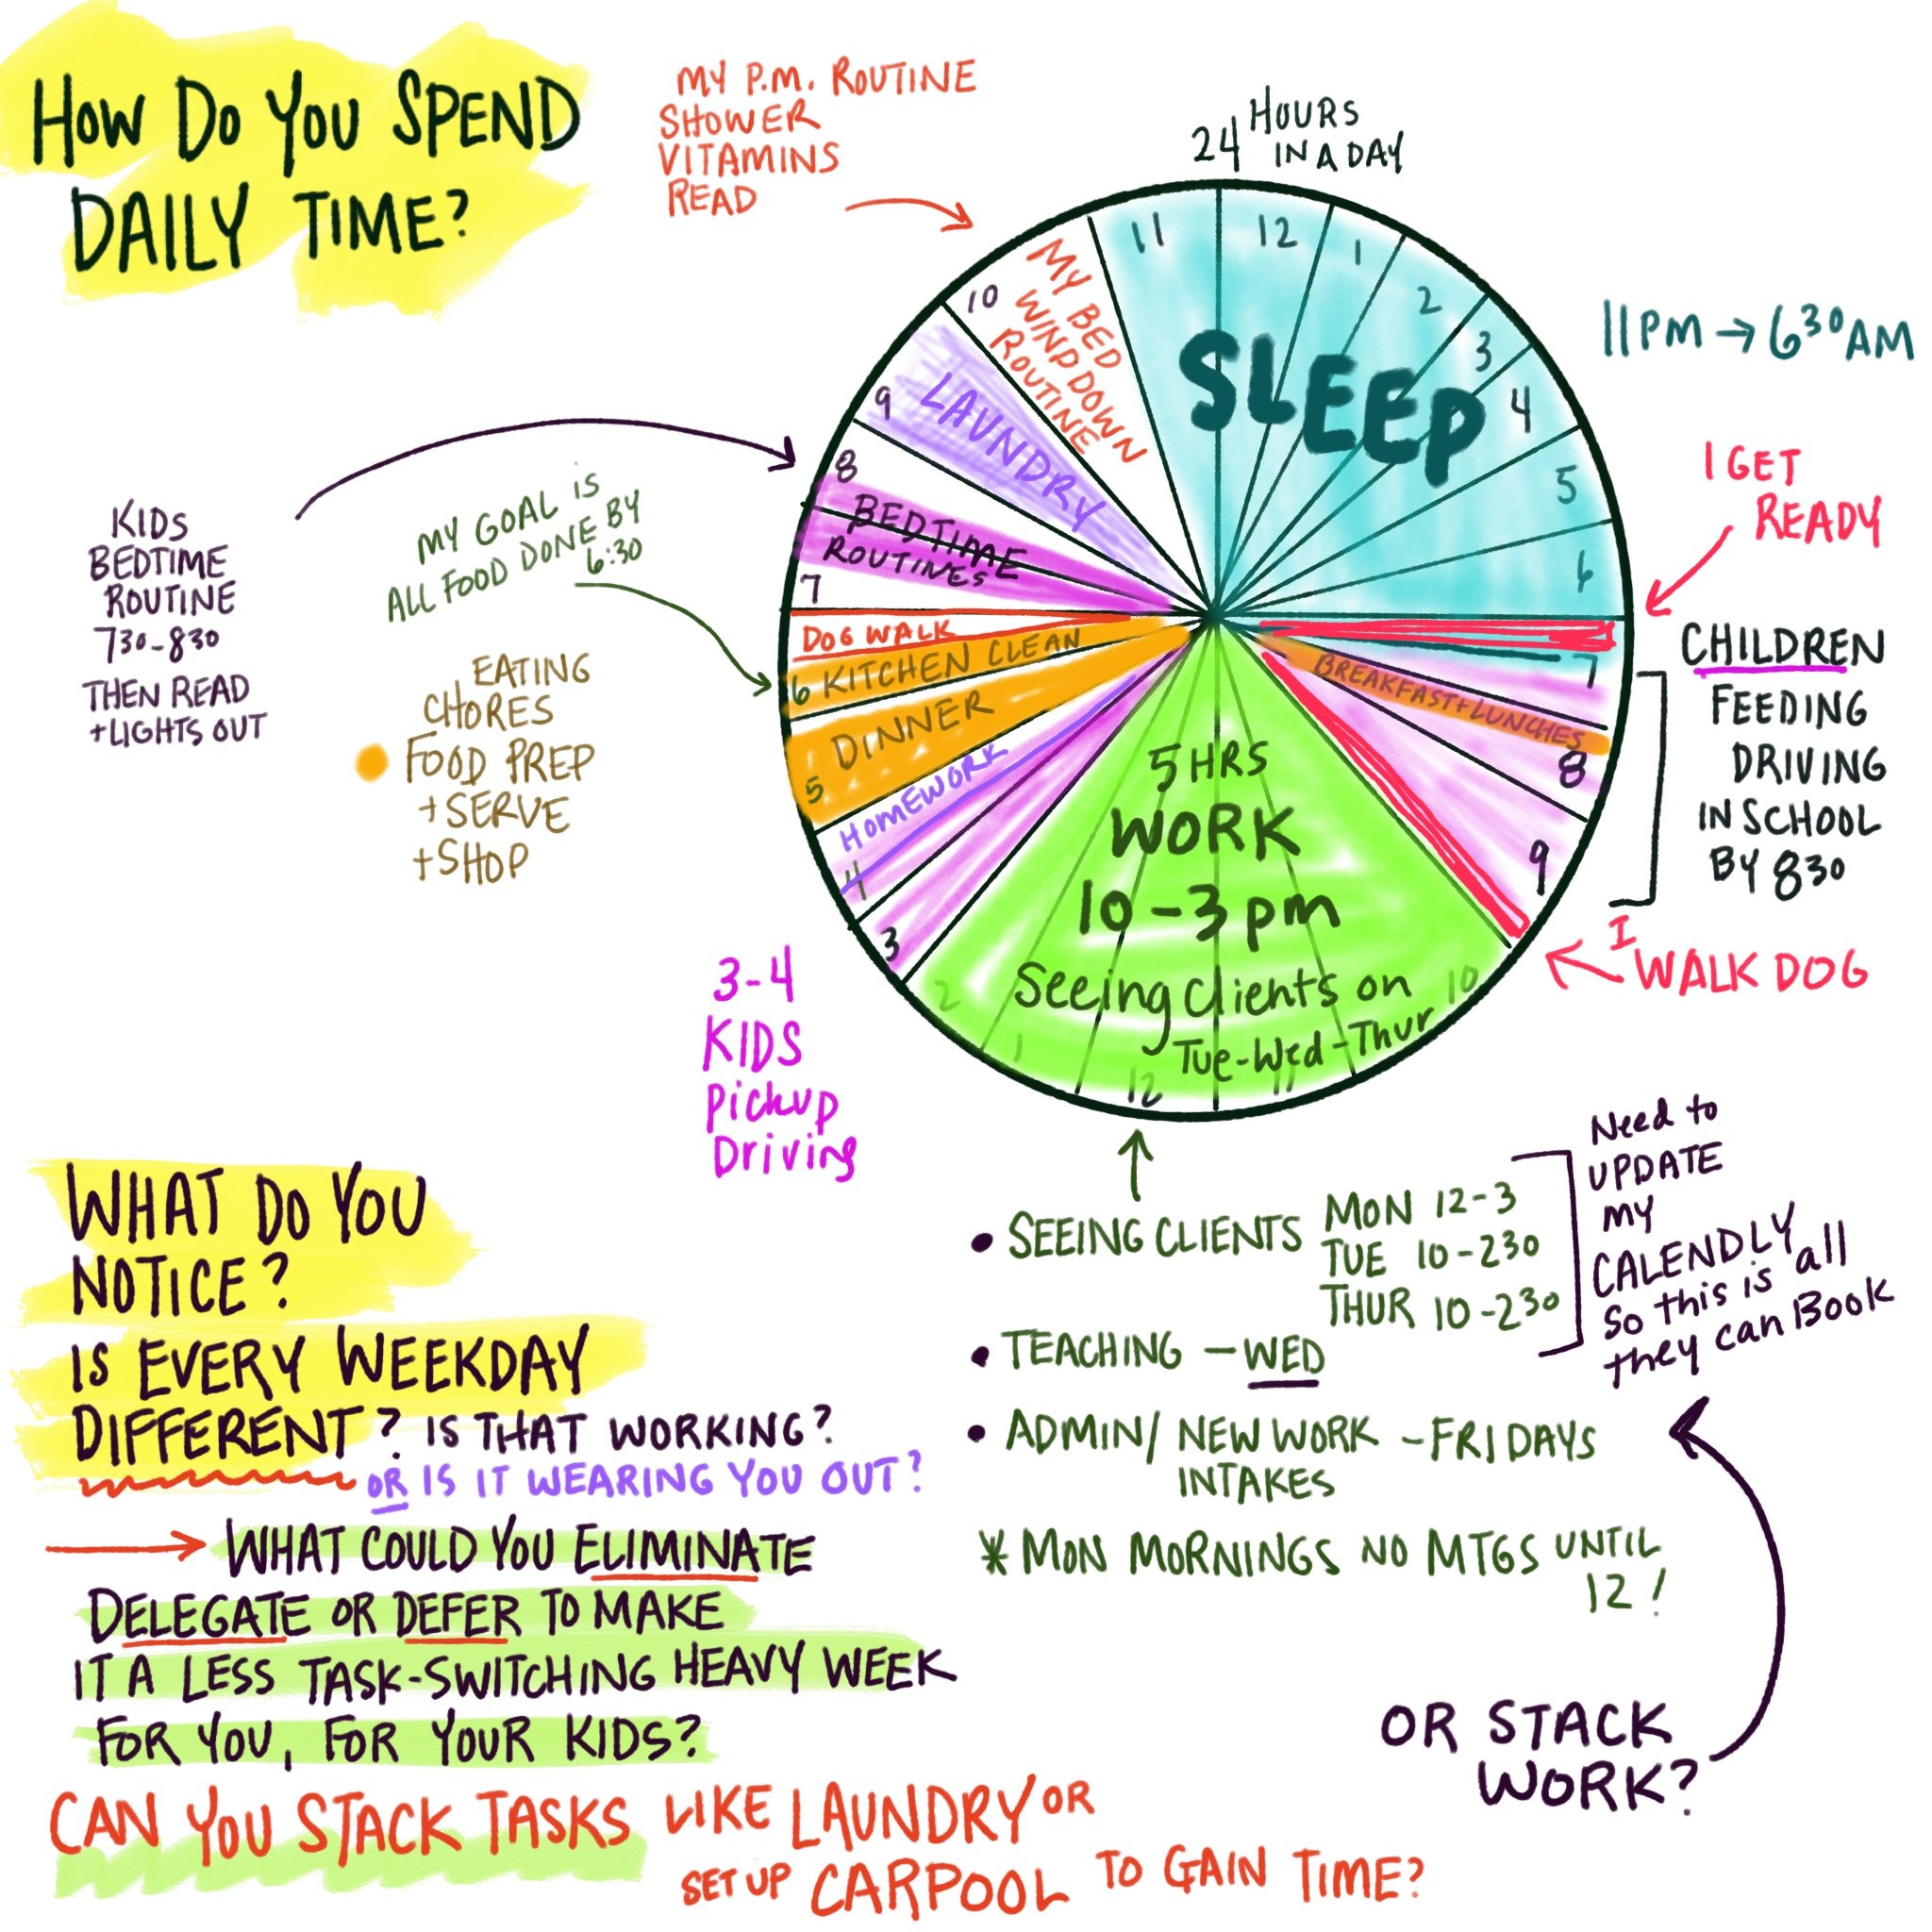 How Do You SPEND
DAILY TIME?
MY P.M. ROUTINE
SHOWER
VITAMINS
READ
24 HOURS
IN A DAY
11
12
1
2
3
4
5
6
SLEEP
11PM → 6³⁰AM
10
MY BED
WIND DOWN
ROUTINE
9
LAUNDRY
8
BEDTIME
ROUTINES
7
DOG WALK
6 KITCHEN CLEAN
DINNER
5
HOMEWORK
4
3
I GET
READY
7
BREAKFAST + LUNCHES
8
9
CHILDREN
FEEDING
DRIVING
IN SCHOOL
BY 830
I
WALK DOG
5 HRS
WORK
10-3pm
Seeing clients on
Tue-Wed-Thur
10
11
12
1
2
KIDS
BEDTIME
ROUTINE
730-830
THEN READ
+LIGHTS OUT
MY GOAL IS
ALL FOOD DONE BY
6:30
EATING
CHORES
FOOD PREP
+SERVE
+SHOP
3-4
KIDS
Pickup
Driving
WHAT DO YOU
NOTICE?
IS EVERY WEEKDAY
DIFFERENT? IS THAT WORKING?
OR IS IT WEARING YOU OUT?
→ WHAT COULD YOU ELIMINATE
DELEGATE OR DEFER TO MAKE
IT A LESS TASK-SWITCHING HEAVY WEEK
FOR YOU, FOR YOUR KIDS?
CAN YOU STACK TASKS LIKE LAUNDRY OR
SET UP CARPOOL TO GAIN TIME?
• SEEING CLIENTS MON 12-3
TUE 10-230
THUR 10-230
Need to
UPDATE
MY
CALENDLY
So this is all
they can Book
• TEACHING - WED
• ADMIN/ NEW WORK - FRIDAYS
INTAKES
* MON MORNINGS NO MTGS UNTIL
12!
OR STACK
WORK?